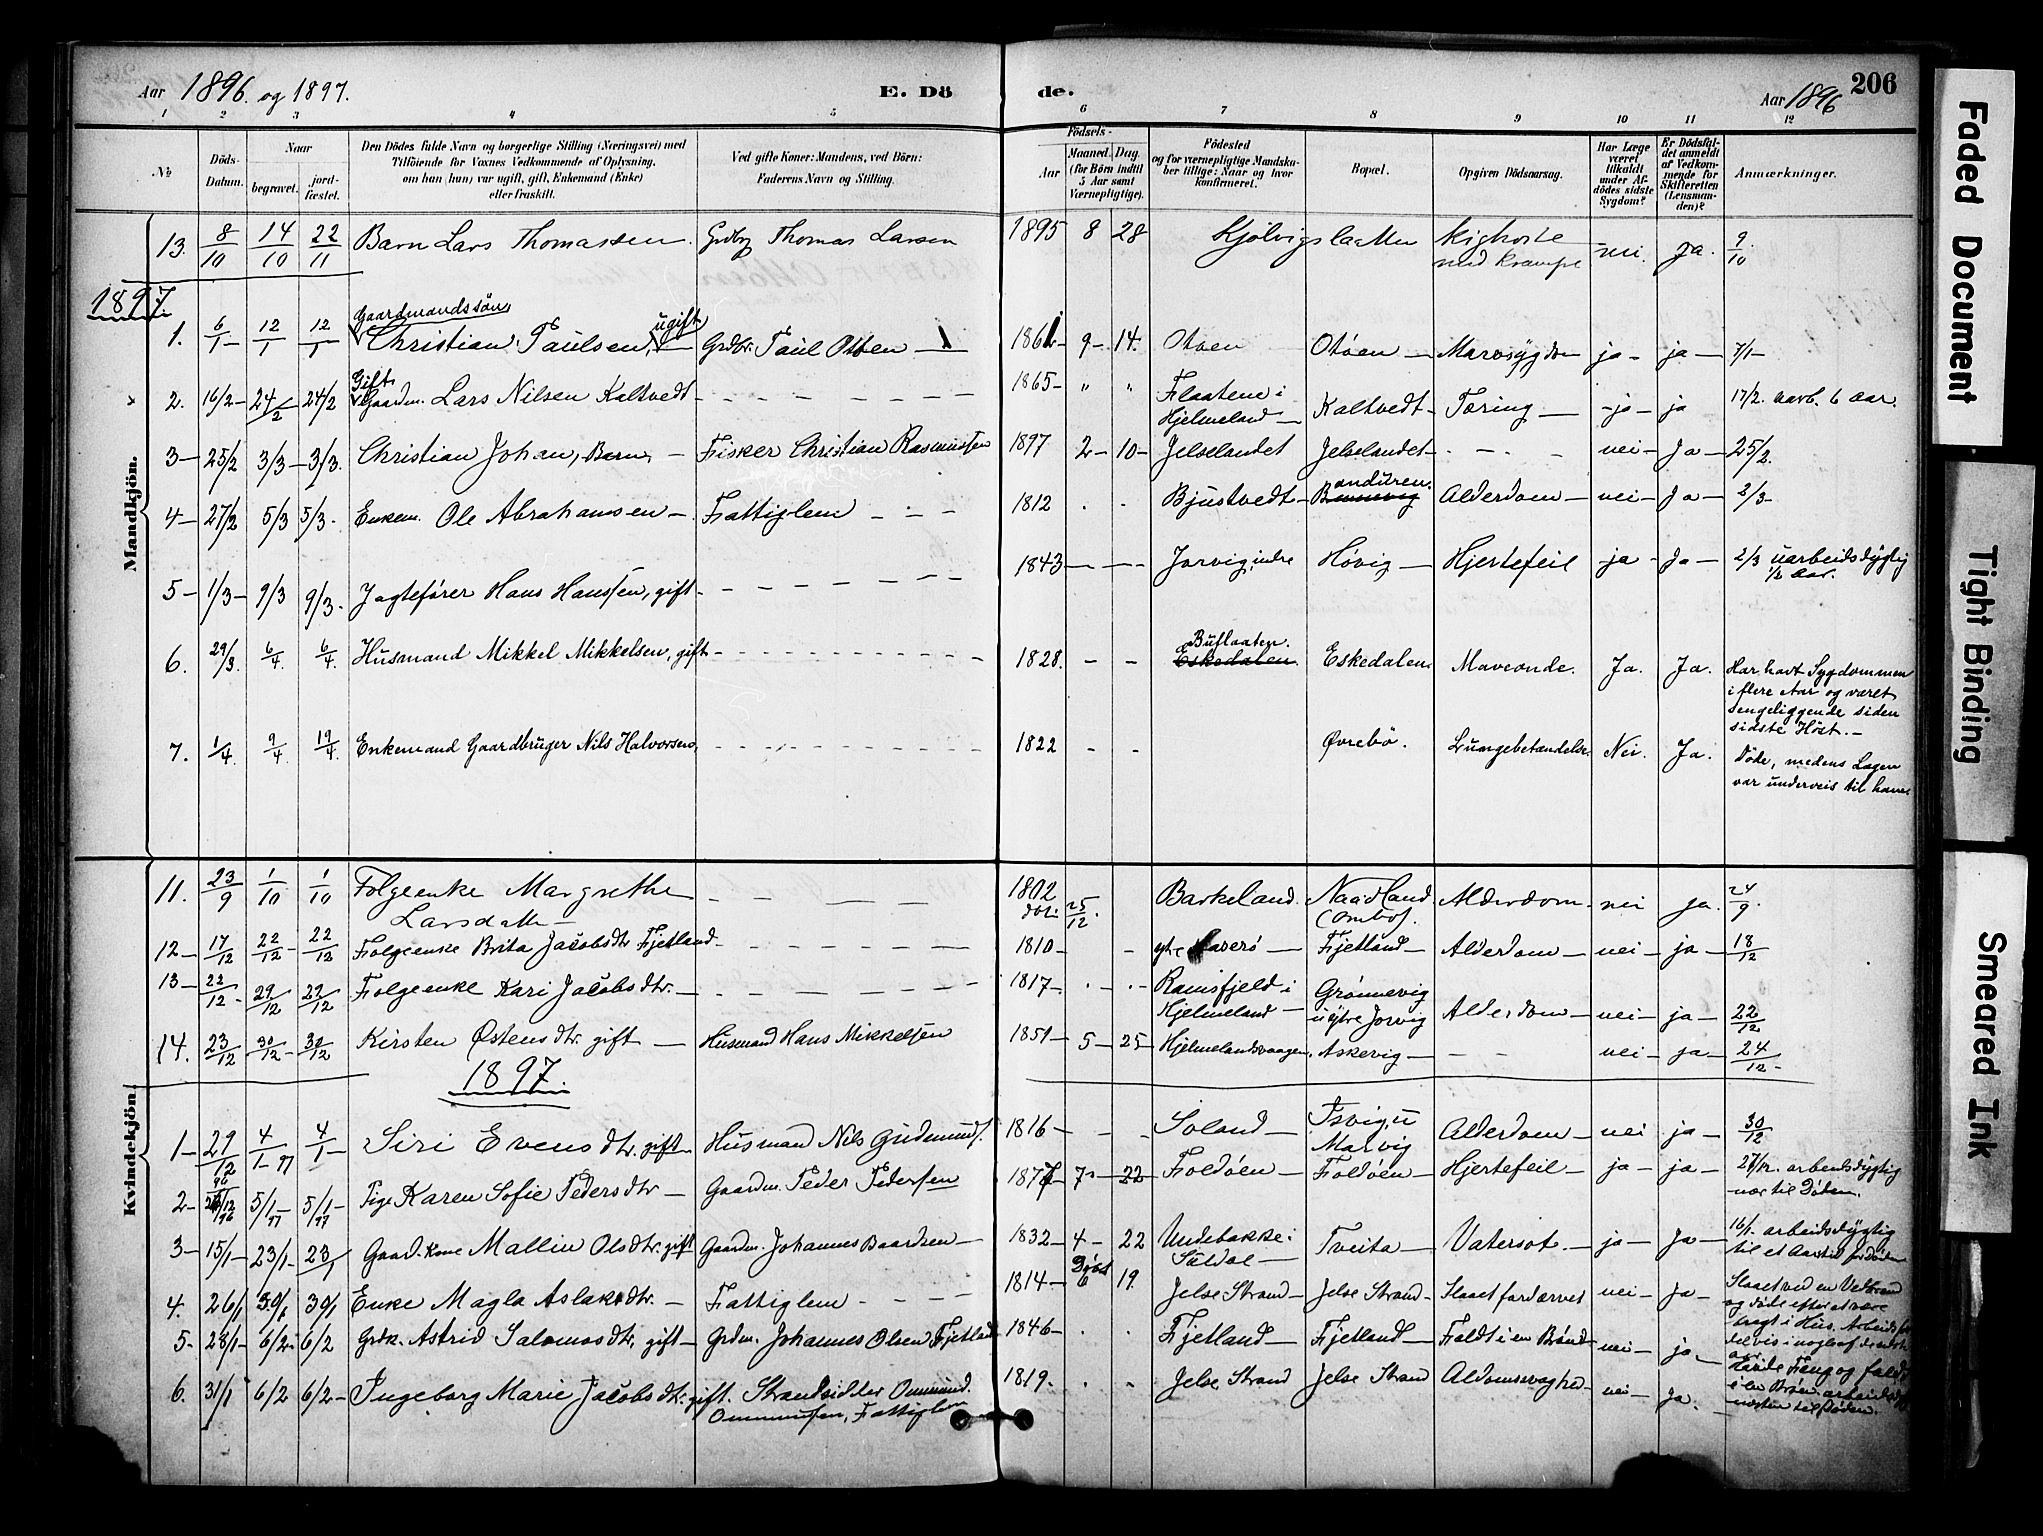 Aar 1896 og 1897. E. Dö de. Aar 1896 206
1 2 3 4 5 6 7 8 9 10 11 12
№ Döds-Datum. Naar begravet. jord-fæstet. Den Dödes fulde Navn og borgerlige Stilling (Næringsvei) med Tilföiende for Voxnes Vedkommende af Oplysning, om han (hun) var ugift, gift, Enkemand (Enke) eller fraskilt. Ved gifte Koner: Mandens, ved Börn: Faderens Navn og Stilling. Födsels- Aar Maaned. Dag. (for Börn indtil 5 Aar samt Værnepligtige). Födested og for værnepligtige Mandskaber tillige: Naar og hvor konfirmeret. Bopæl. Opgiven Dödsaarsag. Har Læge været tilkaldt under Afdödes sidste Sygdom? Er Dödsfaldet anmeldt af Vedkommende for Skifteretten (Lensmanden)? Anmærkninger.
Mandkjön.
13. 8/10 14/10 22/11 Barn Lars Thomassen. Grdbr Thomas Larsen 1895 8 28 Kjölvigslatten kighoste med krampe nei. Ja. 9/10
1897.
1. 6/1 12/1 12/1 Gaardmandssön Christian Paulsen, ugift Grdbr. Paul Olsen 1861 9 14. Otöen Otöen Marvsygdom ja ja 7/1
2. 16/2 24/2 24/2 Gift Gaardm. Lars Nilsen Kaltvedt 1865 " " Flaatene i Hjelmeland Kaltvedt Tæring ja ja 17/2. uarb. 6 Aar.
3 25/2 3/3 3/3. Christian Johan, Barn, Fisker Christian Rasmussen 1897 2 10 Jelselandet Jelselandet nei Ja 25/2.
4 27/2 5/3 5/3. Enkem. Ole Abrahamsen Fattiglem 1812 Bjustvedt anduren. Alderdom nei Ja 2/3
5 1/3 9/3 9/3. Jagtefører Hans Hanssen, gift 1843 Jorvig indre Høvig Hjertefeil ja Ja 2/3 uarbeidsdygtig 1/2 Aar.
6. 29/3. 6/4 6/4 Husmand Mikkel Mikkelsen, gift 1828. Buflaaten. Eskedalen. Eskedalen Maveonde. Ja. Ja. Har havt Sygdommen i flere Aar og været sengeliggende siden sidste Höst.
7. 1/4 9/4 19/4 Enkemand Gaardbruger Nils Halvorsen, 1822 Øvrebö. Lungebetændelse. Nei. Ja. Döde, medens Lægen var underveis til ham
Kvindekjön.
11. 23/9 1/10 1/10 Folgeenke Margrethe Larsdatter 1802 döbt 25/12. Barkeland. Naadland (Ombo). Alderdom nei ja 24/9.
12 17/12 22/12 22/12 Folgeenke Brita Jacobsdtr Fjetland 1810 ytre Fjetland Alderdom nei ja 18/12
13 22/12 29/12 29/12 Folgeenke Kari Jacobsdtr. 1817 Ramsfjeld i Hjelmeland Grønnevig u ytre Jorvig Alderdom nei ja 22/12
14. 23/12 30/12 30/12 Kirsten Østensdtr. gift Husmand Hans Mikkelsen 1851 5 25 Hjelmelandsvaagen. Askevig nei ja 24/12
1897.
1 29/12 96 4/1 97 4/1 Siri Evensdtr. gift Husmand Nils Gudmunds. 1816 Soland Marvig Alderdom nei ja 30/12
2 26/12 96 5/1 97 5/1 97 Pige Karen Sofie Pedersdtr Gaardm. Peder Pedersen 1877 7 22 Foldöen Foldöen Hjertefeil ja ja 27/12. arbeidsdygtig nær til Döden.
3 15/1 23/1 23/1 Gaard.kone Mallin Olsdtr. gift Gaardm. Johannes Baardsen 1832 4 22 Undebakke i Suldal Tveita Vatersot. ja Ja 16/1. arbeidsdygtig til et Aarstid før döden
4. 26/1 30/1 30/1 Enke Magla Aslaksdtr. Fattiglem 1814 Döbt 6 19. Jelse Strand Jelse Strand Slaaet fordærvet nei Ja Slaaet ved en og döde efter at være bragt i Hus.
5. 28/1 6/2 6/2 Grdk. Astrid Salomosdtr, gift Grdm. Johannes Olsen Fjetland 1846 Fjetland Fjetland Faldt i en Brönd nei ja
6. 31/1 6/2 6/2 Ingeborg Marie Jacobsdtr. gift. Strandsidder Ommund Ommundsen, Fattiglem 1819. Jelse Strand Jelse Strand nei Ja. næsten til Döden.
Faded Document
Tight Binding
Smeared Ink